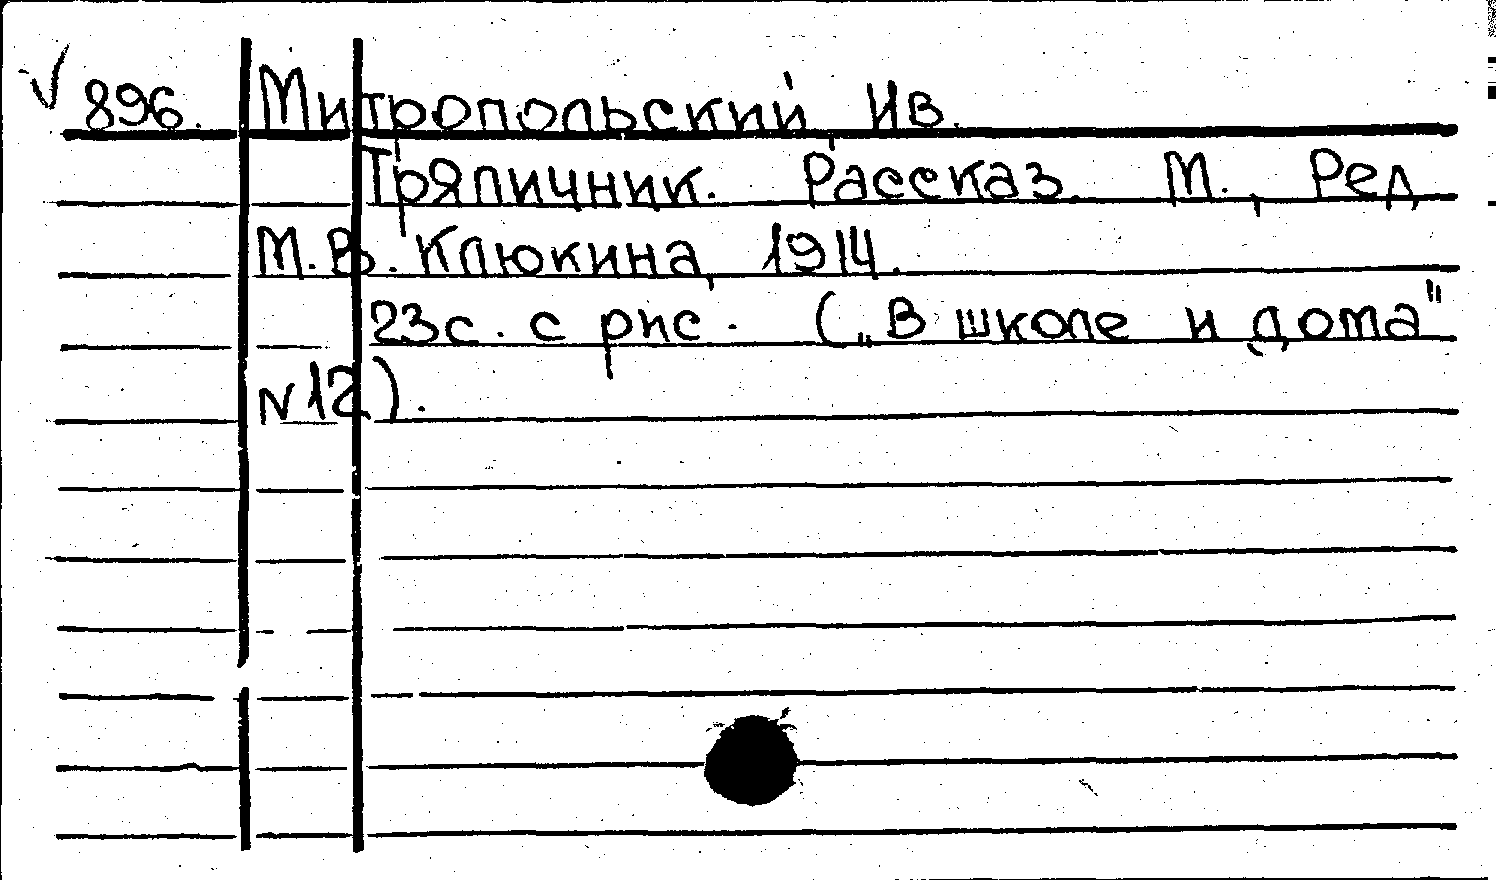 √ 896. Митропольский Ив.
Тряпичник. Рассказ. М., Ред
М.В. Клюкина, 1914.
23с. с рис. („В школе и дома"
N12).